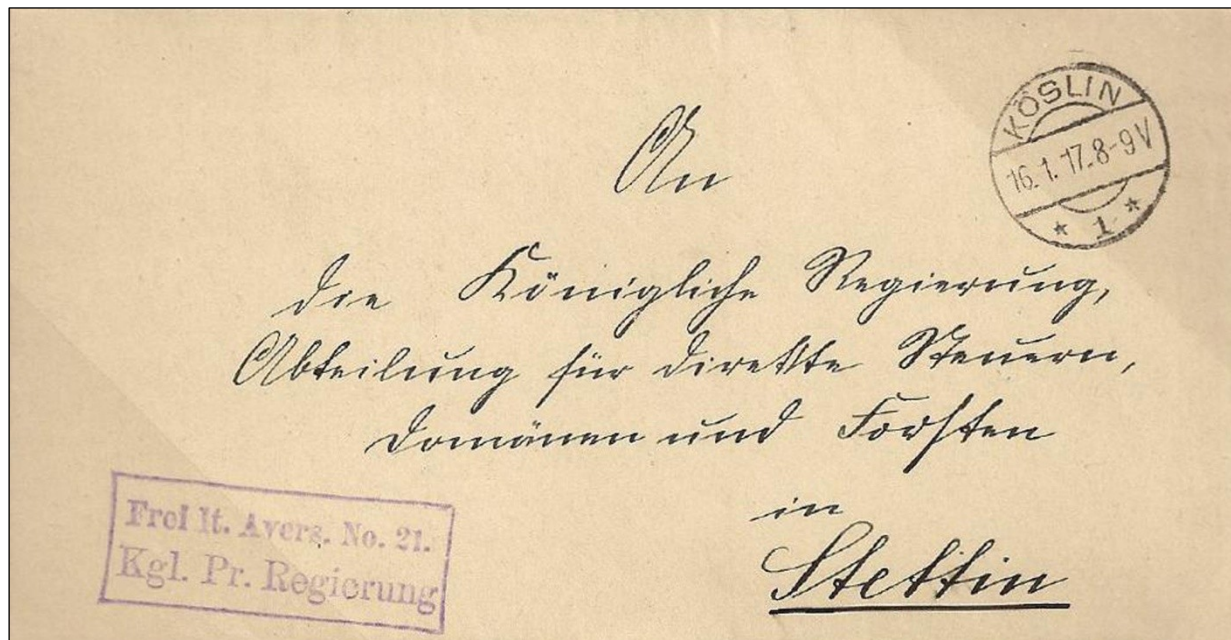 KÖSLIN
16.1.17.8-9V
* 1 *
An
die Königliche Regierung,
Abteilung für direkte Steuern,
Domänen und Forsten
in
Stettin
Frei lt. Avers. No. 21.
Kgl. Pr. Regierung